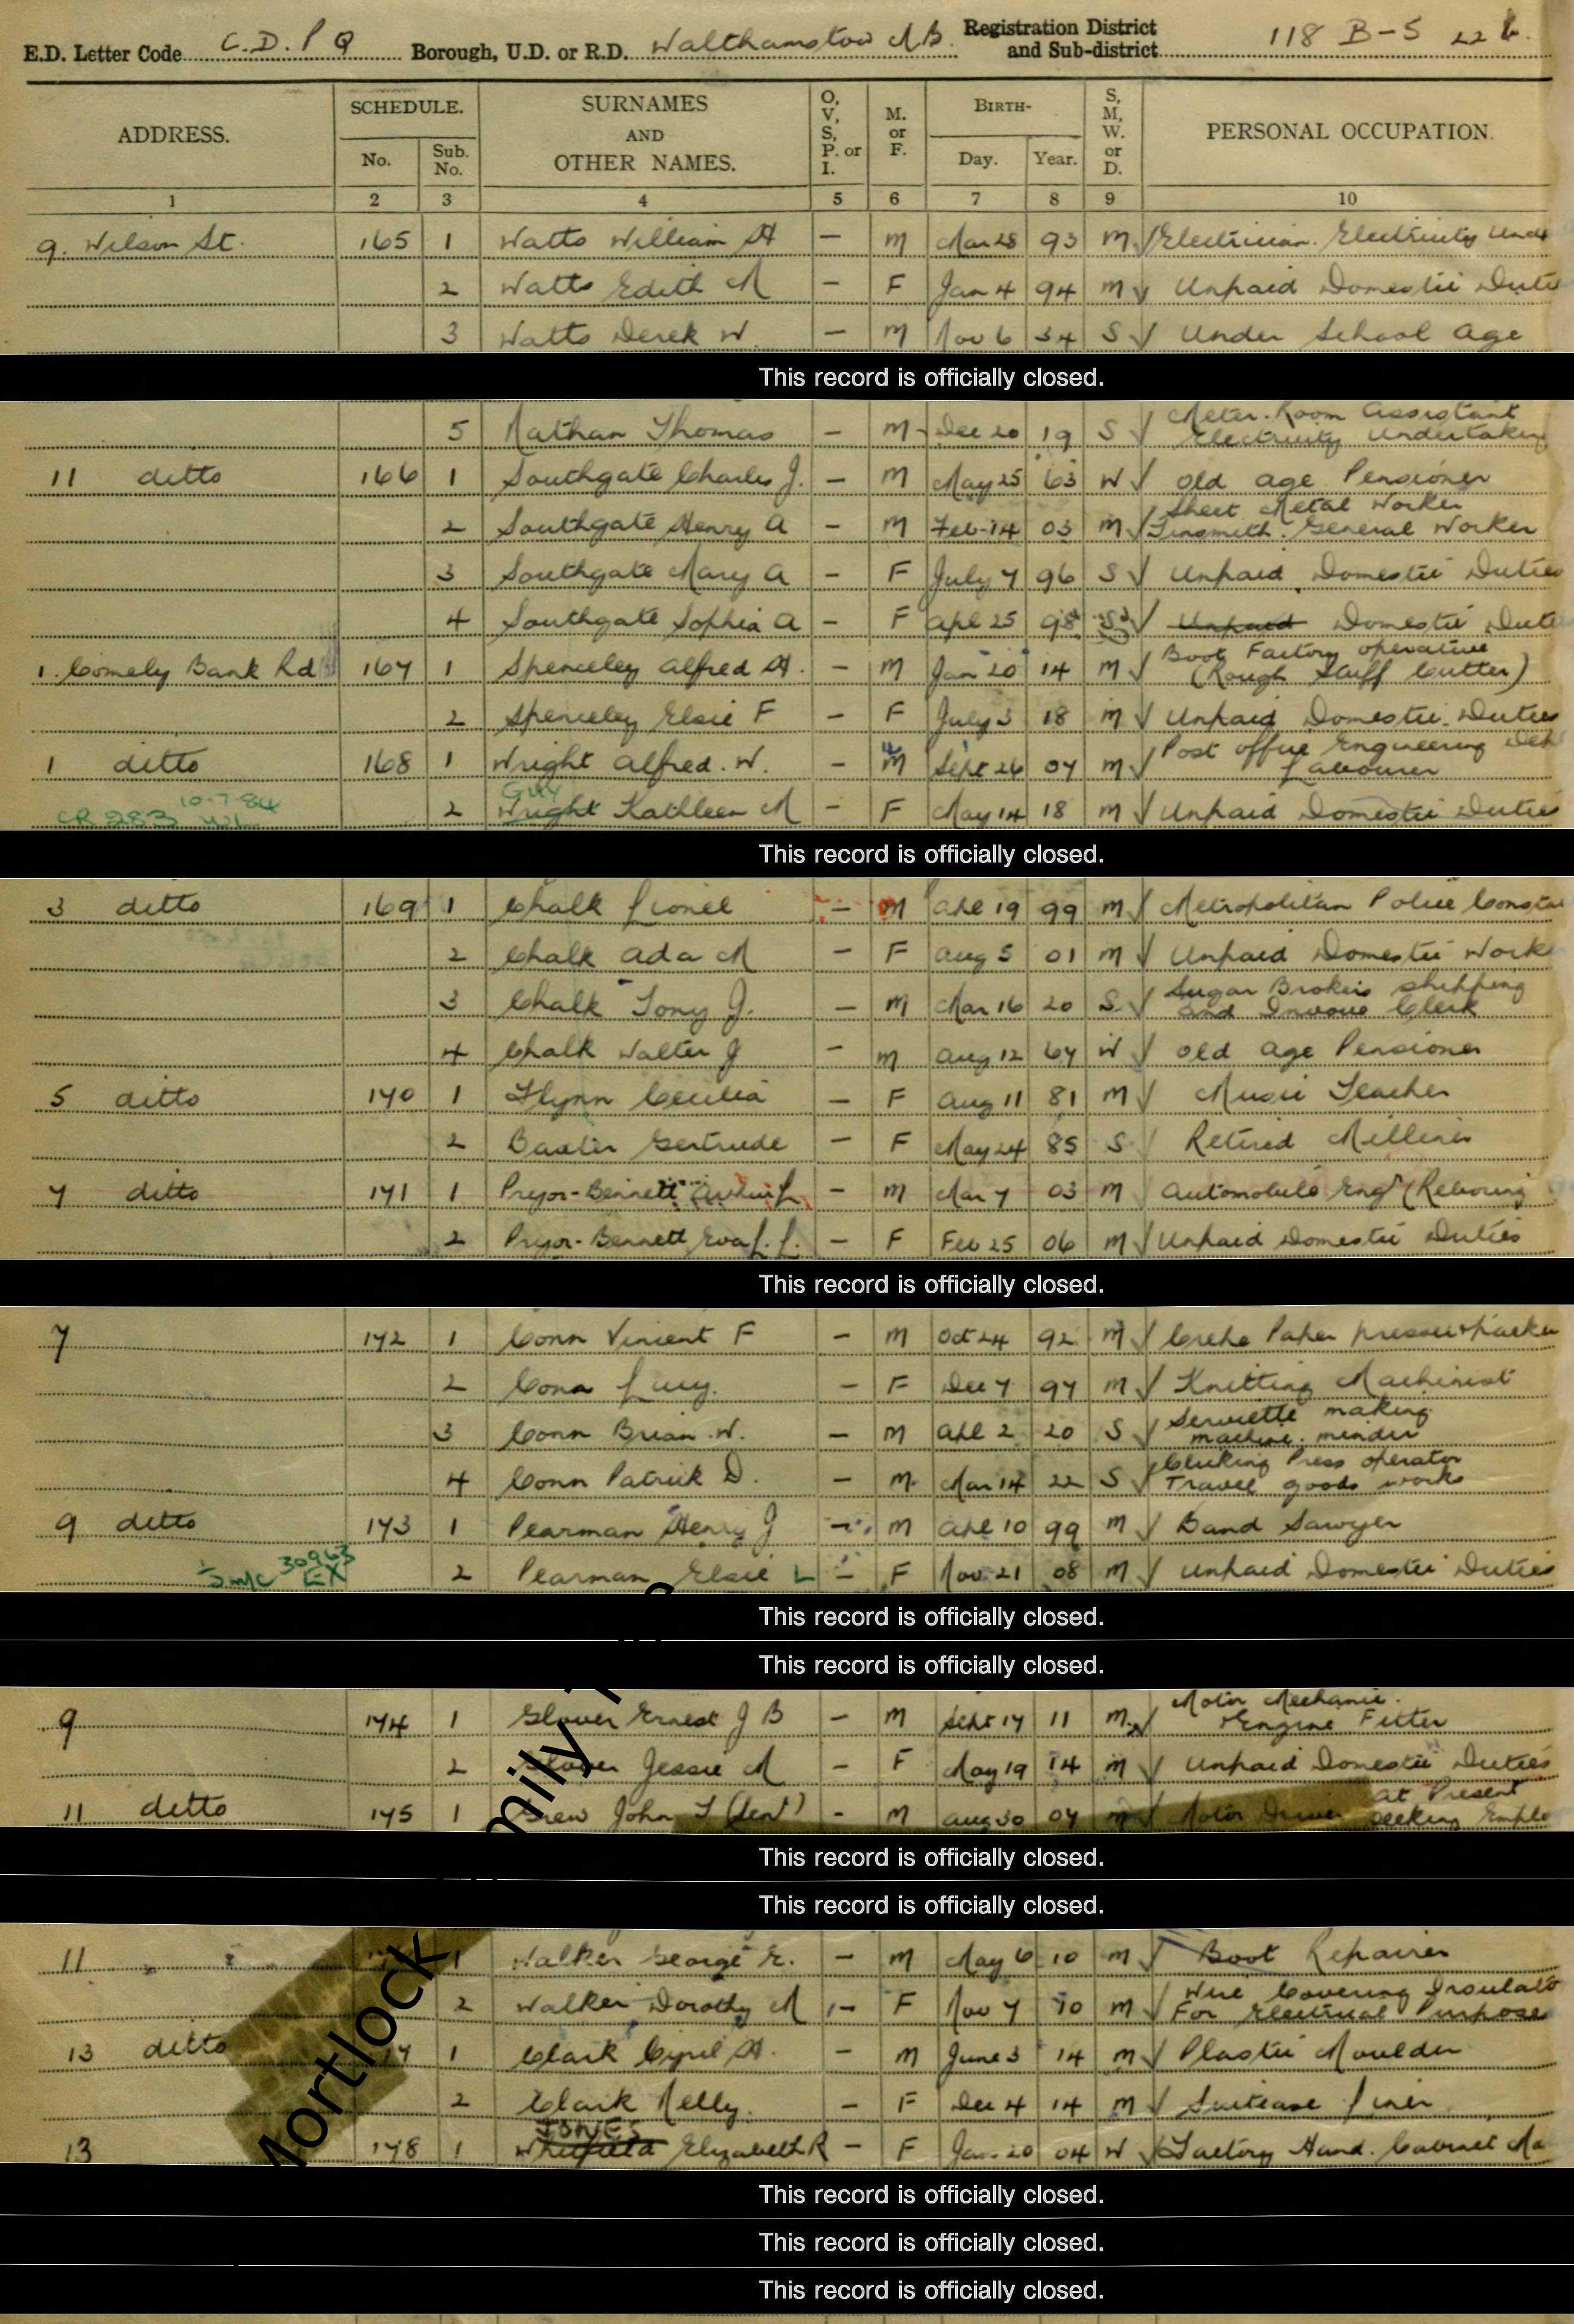 E.D. Letter Code C.D. P Q Borough, U.D. or R.D. Walthamstow M.B. Registration District and Sub-district 118 B-5 22
ADDRESS. SCHEDULE. No. Sub. No. SURNAMES AND OTHER NAMES. O, V, S, P. or I. M. or F. BIRTH- Day. Year. S, M, W. or D. PERSONAL OCCUPATION.
1 2 3 4 5 6 7 8 9 10
9. Wilson St. 165 1 Watts William H — M Mar 28 93 M Electrician. Electricity Unde
2 Watts Edith M — F Jan 4 94 M Unpaid Domestic Dutie
3 Watts Derek W. — M Nov 6 34 S Under School Age
This record is officially closed.
5 Nathan Thomas — M Dec 20 19 S Meter-Room Assistant Electricity Undertaking
11 ditto 166 1 Southgate Charles J. — M May 25 63 W Old Age Pensioner
2 Southgate Henry A — M Feb 14 03 M Sheet Metal Worker Tinsmith. General Worker
3 Southgate Mary A — F July 7 96 S Unpaid Domestic Duties
4 Southgate Sophia A — F Apl 25 98 S Unpaid Domestic Dutie
1. Comely Bank Rd 167 1 Spenceley Alfred H. — M Jan 20 14 M Boot Factory operative (Rough Stuff Cutter)
2 Spenceley Elsie F — F July 3 18 M Unpaid Domestic Duties
1 ditto 168 1 Wright Alfred. W. — M Sept 26 07 M Post Office Engineering Labourer
CR 283 10-7-84 2 Guy Wright Kathleen M — F May 14 18 M Unpaid Domestic Duties
This record is officially closed.
3 ditto 169 1 Chalk Lionel — M Apl 19 99 M Metropolitan Police Consta
2 Chalk Ada M — F Aug 5 01 M Unpaid Domestic Work
3 Chalk Tony J. — M Mar 16 20 S Sugar Brokers Shipping and Invoice Clerk
4 Chalk Walter J — M Aug 12 67 W Old Age Pensioner
5 ditto 170 1 Flynn Cecilia — F Aug 11 81 M Music Teacher
2 Baxter Gertrude — F May 24 85 S Retired Milliner
7 ditto 171 1 Pryor-Bennett — M Mar 7 03 M Automobile Engr (Reboring
2 Pryor-Bennett Eva L. L. — F Feb 25 06 M Unpaid Domestic Duties
This record is officially closed.
7 172 1 Conn Vincent F — M Oct 24 92 M Crepe Paper presser & packer
2 Conn Lucy. — F Dec 7 97 M Knitting Machinist
3 Conn Brian W. — M Apl 2 20 S Serviette making machine. minder
4 Conn Patrick D. — M Mar 14 22 S Clicking Press operator Travel goods works
9 ditto 173 1 Pearman Henry J — M Apl 10 99 M Band Sawyer
30963 EX 2 Pearman Elsie L — F Nov 21 08 M Unpaid Domestic Duties
This record is officially closed.
This record is officially closed.
9 174 1 Glover Ernest J B — M Sept 17 11 M Motor Mechanic. Engine Fitter
2 Glover Jessie M — F May 19 14 M Unpaid Domestic Duties
11 ditto 175 1 Grew John T (Senr) — M Aug 30 07 M Motor Driver At Present Seeking Emplo
This record is officially closed.
This record is officially closed.
11 1 Walker George E. — M May 6 10 M Boot Repairer
2 Walker Dorothy M — F Nov 7 10 M Wire Covering Insulato For Electrical Purposes
13 ditto 1 Clark Cyril H. — M June 3 14 M Plastic Moulder
2 Clark Nelly. — F Dec 4 14 M Suitcase Liner
13 178 1 JONES Whitfield Elizabeth R — F Jan 20 04 W Factory Hand. Cabinet Ma
This record is officially closed.
This record is officially closed.
This record is officially closed.
Mortlock mily